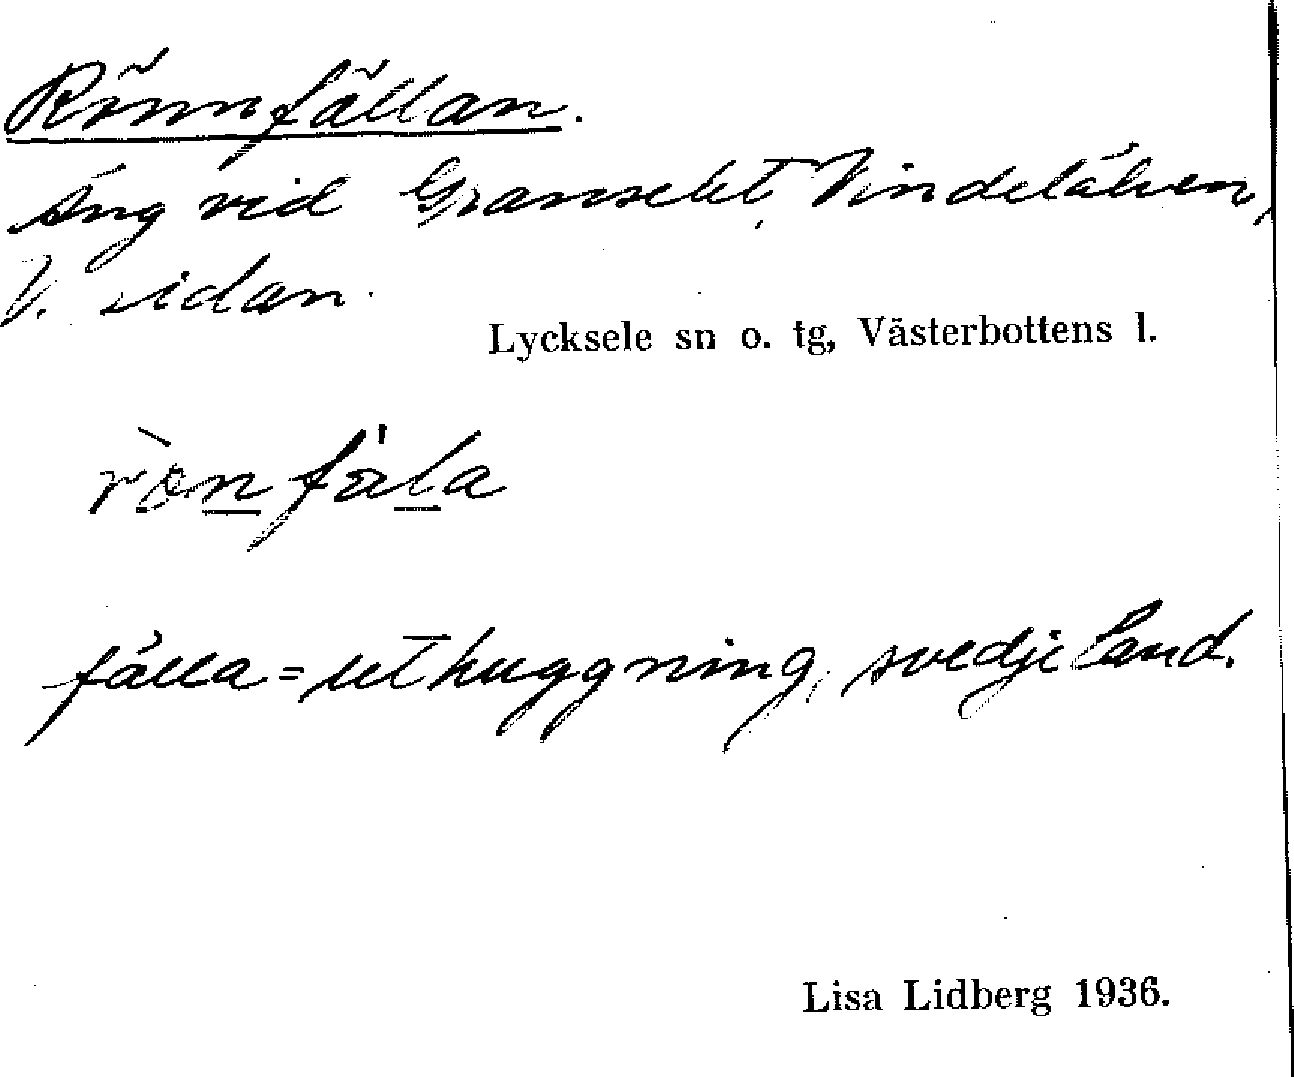 Rönnfällan.
Äng vid Gransele, Vindelälven,
V. sidan.
Lycksele sn o. tg, Västerbottens l.
fälla = uthuggning, svedjeland.
Lisa Lidberg 1936.